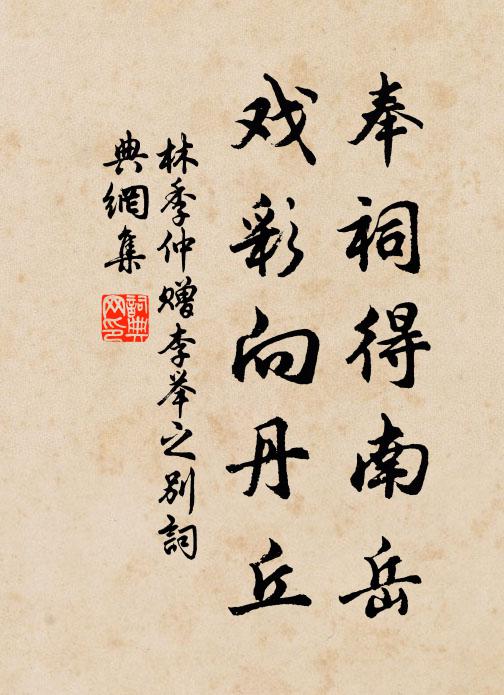 奉祠得南岳
戏彩向丹丘
林季仲赠李举之别詞
典網集
詞典
网印